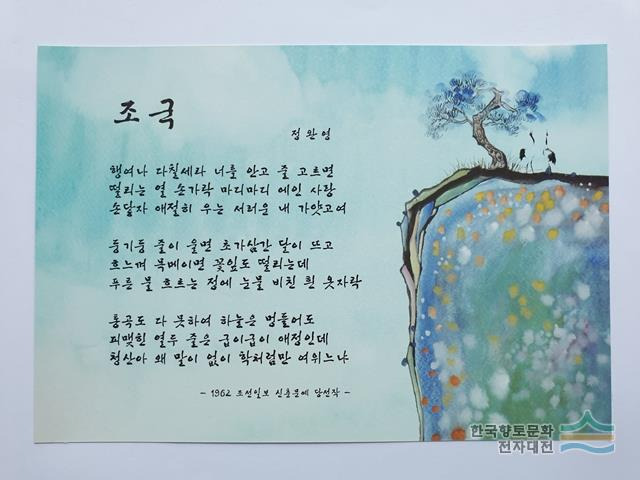 조국
정완영
행여나 다칠세라 너를 안고 줄 고르면
떨리는 열 손가락 마디마디 에인 사랑
손닿자 애절히 우는 서러운 내 가얏고여
둥기둥 줄이 울면 초가삼간 달이 뜨고
흐느껴 목메이면 꽃잎도 떨리는데
푸른 물 흐르는 정에 눈물 비친 흰 옷자락
통곡도 다 못하여 하늘은 멍들어도
피맺힌 열두 줄은 굽이굽이 애정인데
청산아 왜 말이 없이 학처럼만 여위느냐
- 1962 조선일보 신춘문예 당선작 -
한국향토문화
전자대전